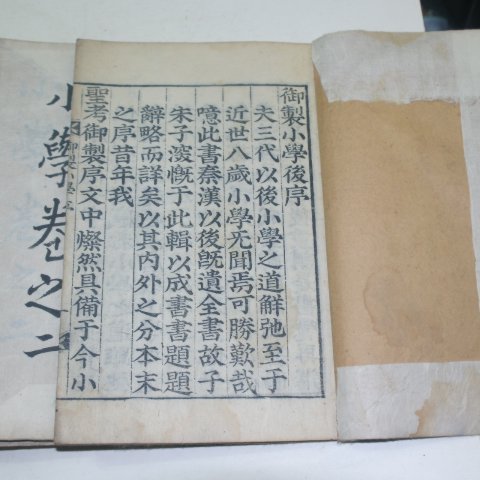 御製小學後序
夫三代以後小學之道鮮弛至于
近世八歲小學旡聞焉可勝歎哉
噫此書秦漢以後旣遺全書故子
朱子深慨于此輯以成書書題題
辭略而詳矣以其內外之分本末
之序昔年我
聖考御製序文中燦然具備于今小
小學卷之二